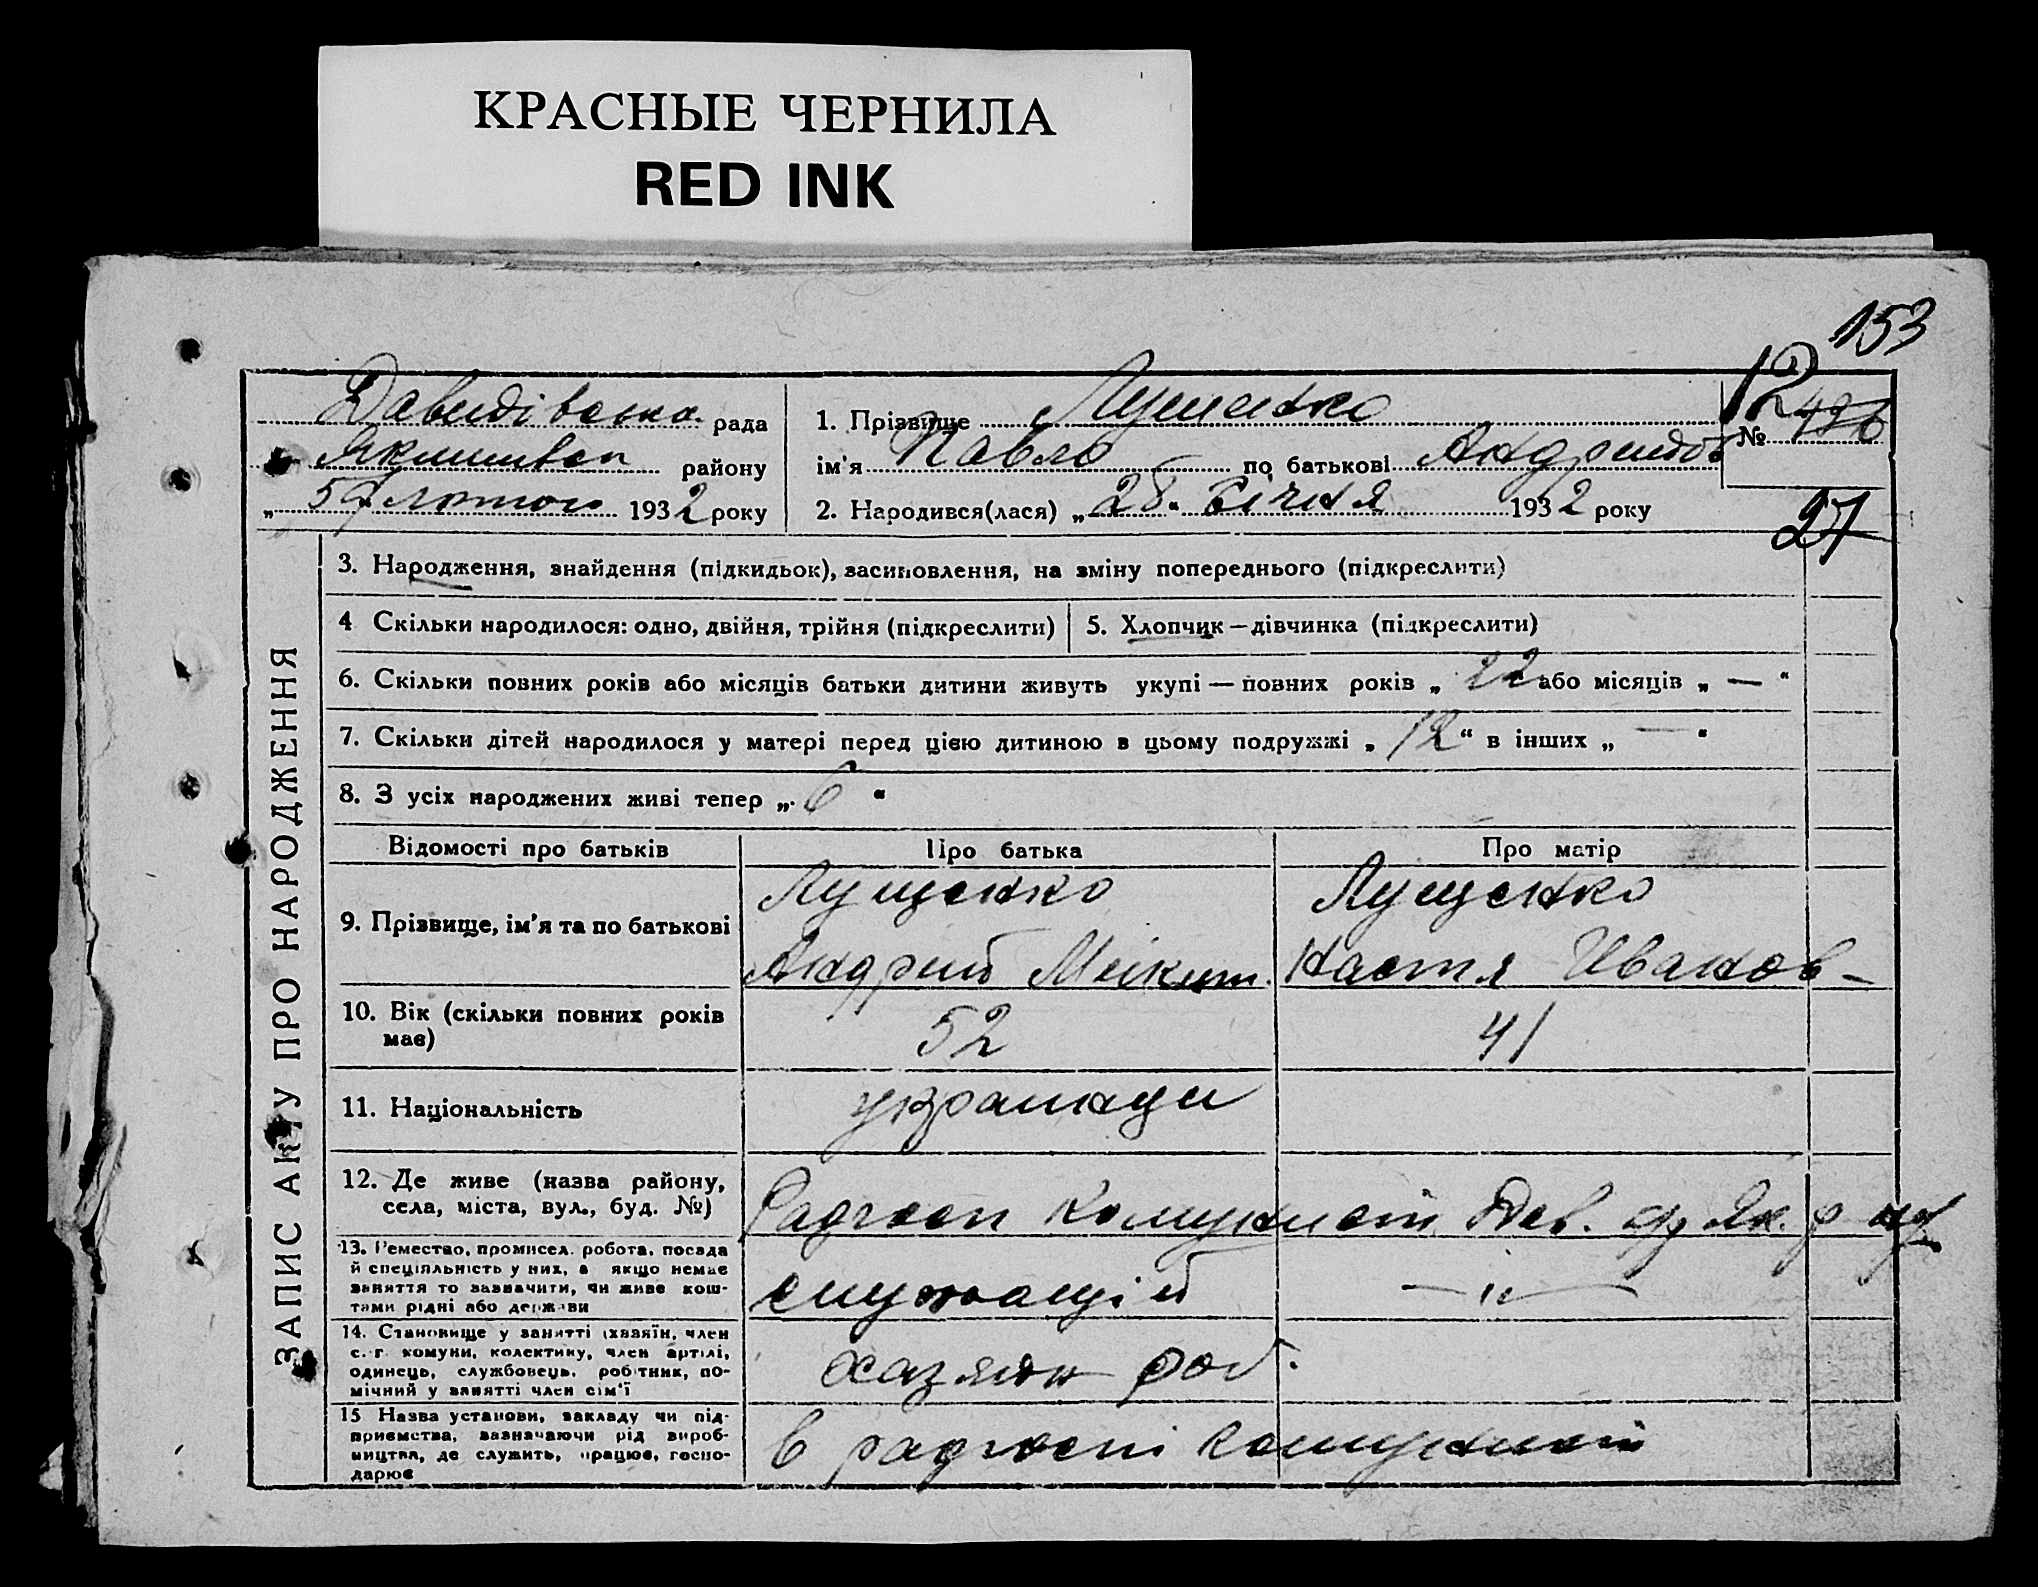 КРАСНЫЕ ЧЕРНИЛА
RED INK
153
Давидівська рада
1. Прізвище Лущенко
12
№ 436
району
ім'я Павло по батькові Андрійов
5 лютого 1932 року
2. Народився(лася) „28“ Січня 1932 року
27
ЗАПИС АКТУ ПРО НАРОДЖЕННЯ
3. Народження, знайдення (підкидьок), засиновлення, на зміну попереднього (підкреслити)
4 Скільки народилося: одно, двійня, трійня (підкреслити)
5. Хлопчик — дівчинка (підкреслити)
6. Скільки повних років або місяців батьки дитини живуть укупі — повних років „ 22 або місяців „ — “
7. Скільки дітей народилося у матері перед цією дитиною в цьому подружжі „ 12 “ в інших „ — “
8. З усіх народжених живі тепер „ 6 “
Відомості про батьків
Про батька
Про матір
9. Прізвище, ім'я та по батькові
Лущенко
Андрий Мікит.
Лущенко
Настя Иванов-
10. Вік (скільки повних років має)
52
41
11. Національність
украинци
12. Де живе (назва району, села, міста, вул., буд. №)
Радгосп Комунист Дав. с/р Як. р
13. Ремество, промисел, робота, посада й спеціяльність у них, а якщо немає заняття то зазначити, чи живе коштами рідні або держави
служащій
— „ —
14. Становище у занятті (хазяїн, член с.-г. комуни, колективу, член артілі, одинець, службовець, робітник, помічний у занятті член сім'ї
роб.
15 Назва установи, закладу чи підприємства, зазначаючи рід виробництва, де служить, працює, господарює
в радгоспі Комунист